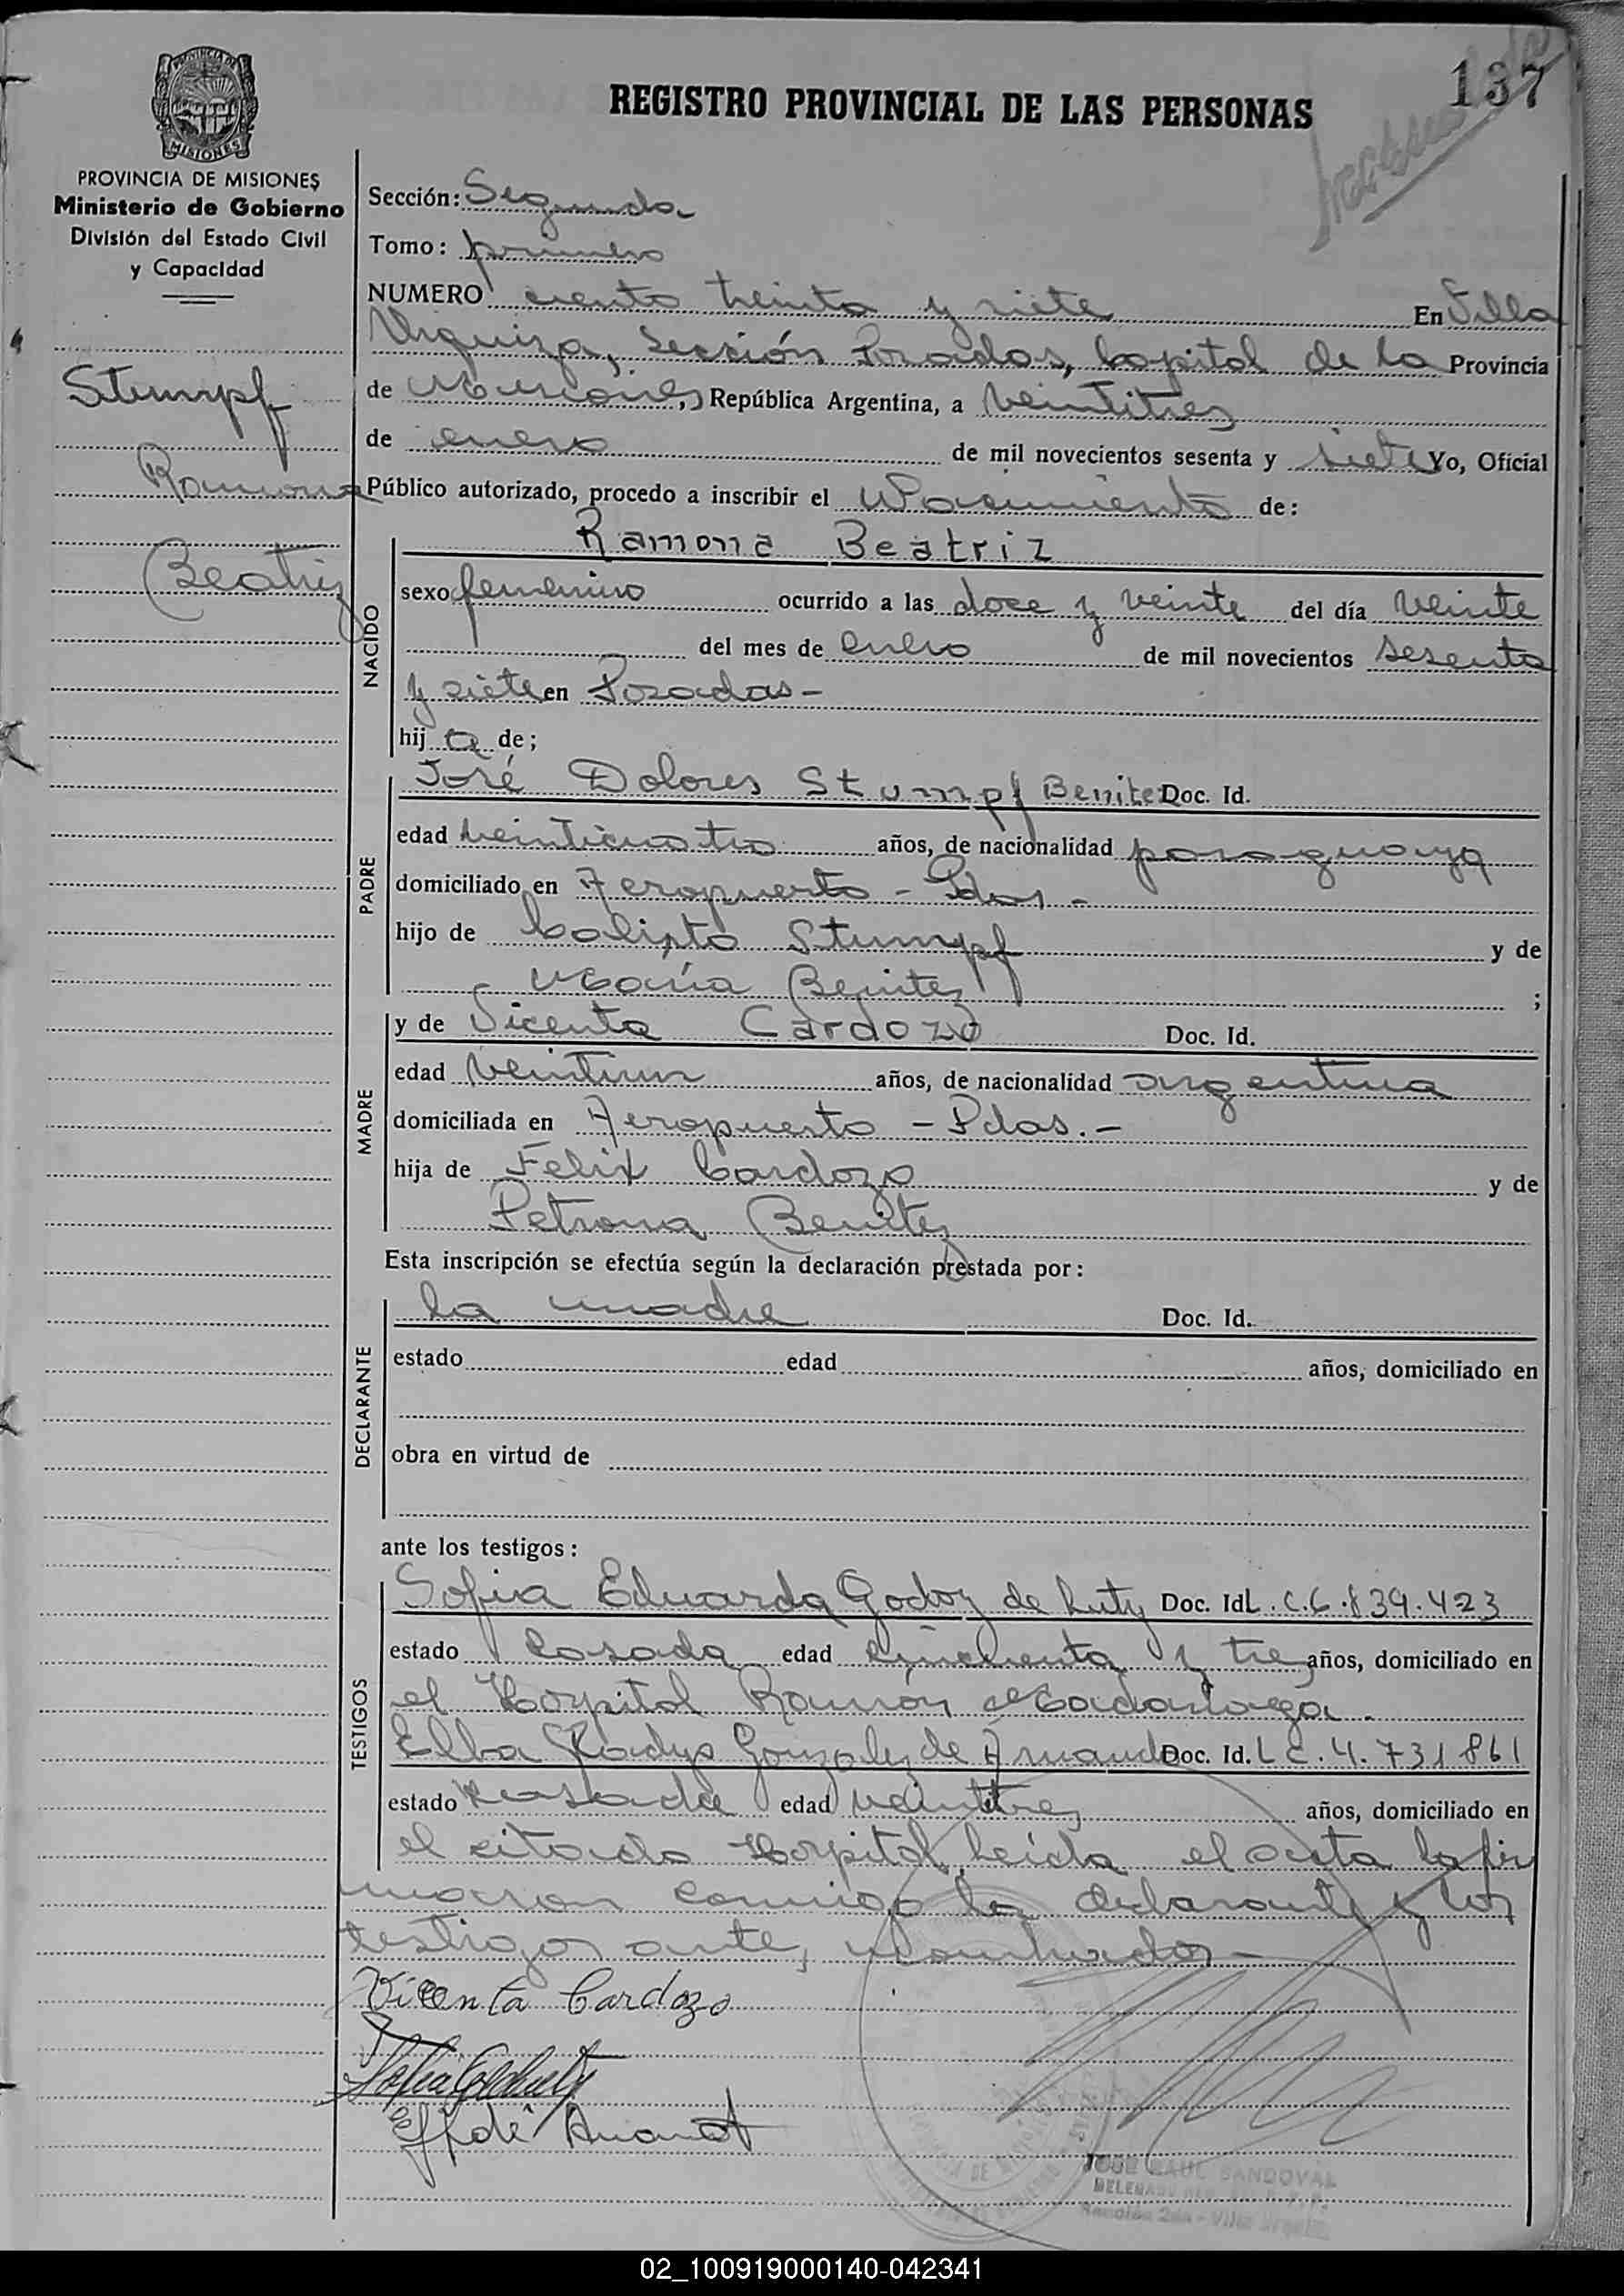 137
REGISTRO PROVINCIAL DE LAS PERSONAS
PROVINCIA DE
MISIONES
PROVINCIA DE MISIONES
Ministerio de Gobierno
División del Estado Civil
y Capacidad
Stumpf
Ramona
Beatriz
Sección: Segunda
Tomo: primero
NUMERO ciento treinta y siete En Villa
Urquiza, Sección Posadas, Capital de la Provincia
de Misiones, República Argentina, a veintitres
de enero de mil novecientos sesenta y siete Yo, Oficial
Público autorizado, procedo a inscribir el Nacimiento de:
NACIDO
Ramona Beatriz
sexo femenino ocurrido a las doce y veinte del día veinte
del mes de enero de mil novecientos sesenta
y siete en Posadas-
hij a de;
PADRE
José Dolores Stumpf Benitez Doc. Id.
edad veinticuatro años, de nacionalidad paraguaya
domiciliado en Aeropuerto - Pdas -
hijo de Calixto Stumpf y de
María Benitez ;
MADRE
y de Vicenta Cardozo Doc. Id.
edad veintiun años, de nacionalidad argentina
domiciliada en Aeropuerto - Pdas.-
hija de Felix Cardozo y de
Petrona Benitez
Esta inscripción se efectúa según la declaración prestada por:
DECLARANTE
la madre Doc. Id.
estado edad años, domiciliado en
obra en virtud de
ante los testigos:
TESTIGOS
Sofia Eduarda Godoy de Luty Doc. Id L.C. 6.839.423
estado Casada edad cincuenta y tres años, domiciliado en
el Hospital Ramón Madariaga.
Elba Gladys Gonzalez de Doc. Id. L C. 4.731861
estado casada edad veintitres años, domiciliado en
el citado Hospital, Leída el acta la fir
maron conmigo la declarante y los
testigos antes nombrados-
Vicenta Cardozo
JOSE RAUL SANDOVAL
02_100919000140-042341